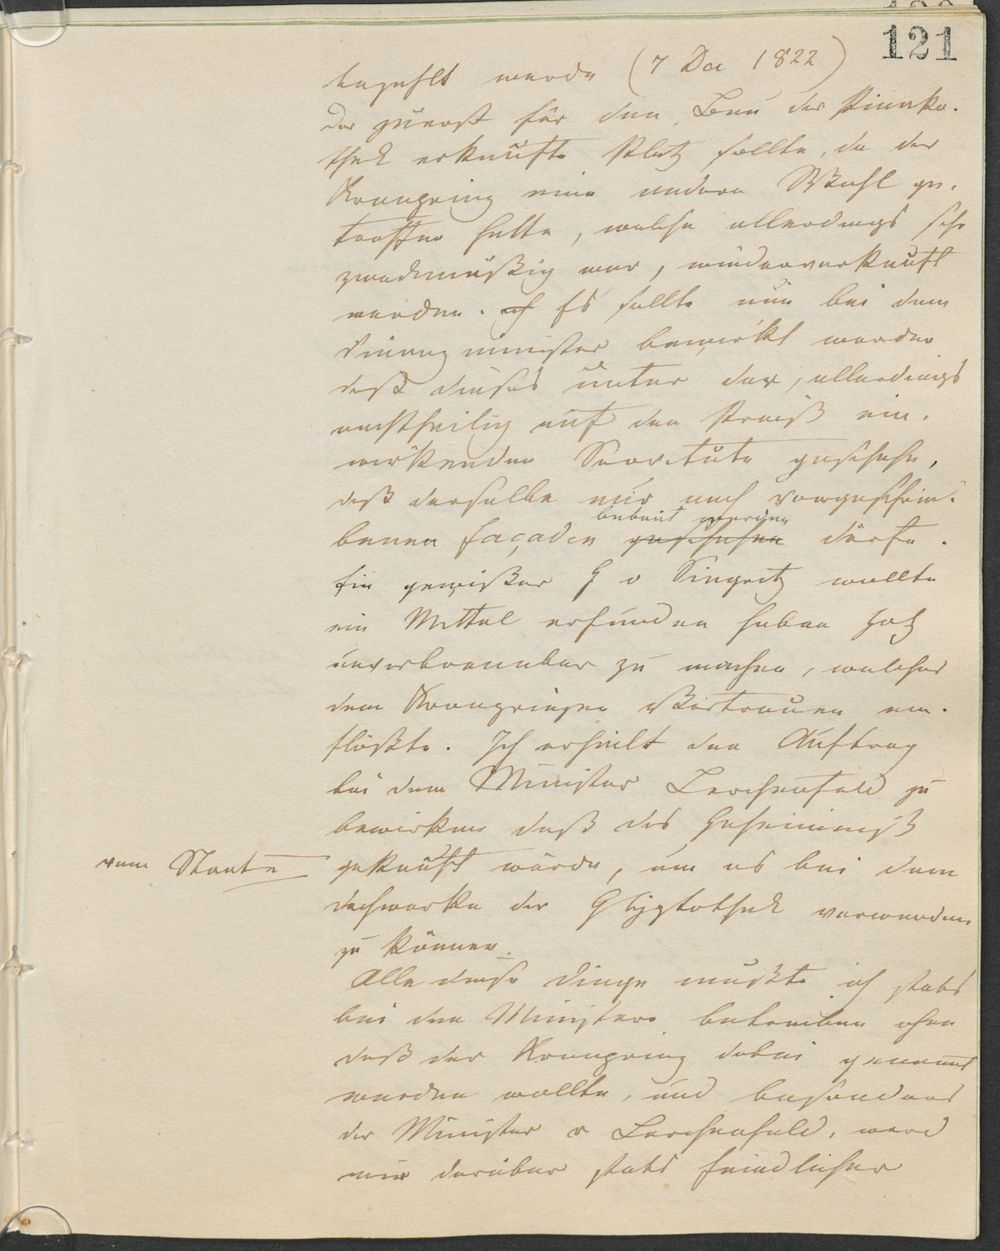 121
bezahlt werde (7 Dec 1822)
Der zuerst für den Bau der Pinako-
thek erkaufte Platz sollte, da der
Kronprinz eine andere Wahl ge-
troffen hatte, welche allerdings sehr
zweckmäßig war, wiederverkauft
werden. Es sollte nun bei dem
Finanzminister bewirkt werden
daß dieses unter der, allerdings
nachtheilig auf den Preiß ein-
wirkenden Servitute geschehe,
daß derselbe nur nach vorgeschrie-
bebaut werden
benen Façaden geschehen dürfe.
Ein gewißer H v Singritz wollte
ein Mittel erfunden haben Holz
unverbrennbar zu machen, welches
dem Kronprinzen Vertrauen ein-
flößte. Ich erhielt den Auftrag
bei dem Minister Lerchenfeld zu
bewirken daß das Geheimniß
vom Staate gekauft würde, um es bei dem
Dachwerke der Glyptothek verwenden
zu können.
Alle diese Dinge mußte ich stets
bei den Ministern betreiben ohne
daß der Kronprinz dabei genannt
werden wollte, und besonders
der Minister v Lerchenfeld, ward
mir darüber stets feindlicher